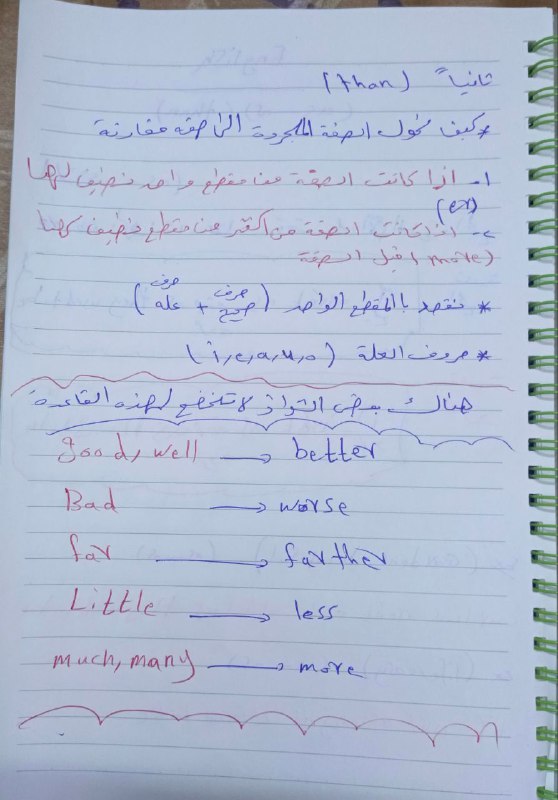 ثانياً (than)
* كيف نحول الصفة المجردة الى صفة مقارنة
١- اذا كانت الصفة من مقطع واحد نضيف لها
(er)
٢- اذا كانت الصفة من اكثر من مقطع نضيف لها
(more) قبل الصفة
* نقصد بالمقطع الواحد (حرف صحيح + حرف عله)
* حروف العلة (i, e, a, u, o)
هناك بعض الشواذ لا تخضع لهذه القاعدة
good, well → better
Bad → worse
far → farther
Little → less
much, many → more